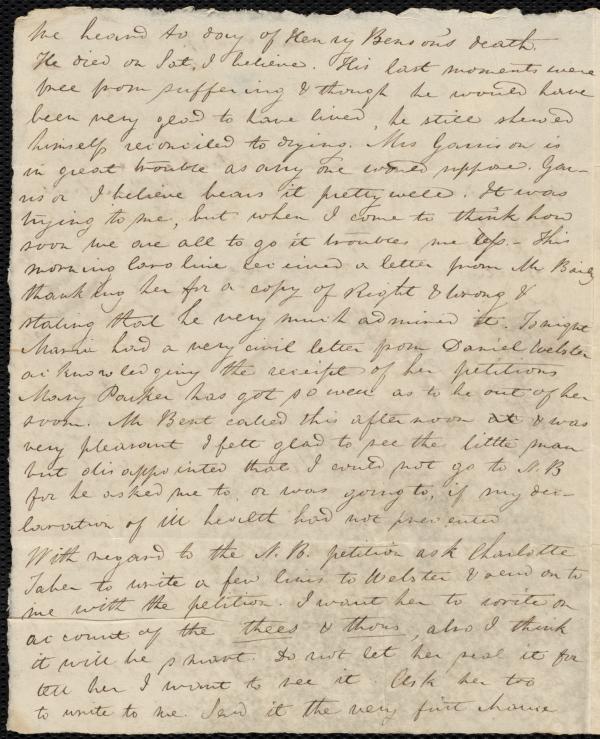 We heard to day of Henry Benson's death.
He died on Sat, I believe. His last moments were
free from suffering & though he would have
been very glad to have lived, he still shewed
himself reconciled to dying. Mrs Garrison is
in great trouble as any one would suppose. Gar-
rison I believe bears it pretty well. It was
trying to me, but when I come to think how
soon we are all to go it troubles me less. - This
morning Caroline received a letter from Mr Baily
thanking her for a copy of Right & Wrong &
stating that he very much admired it. Tonight
Maria had a very civil letter from Daniel Webster
acknowledging the receipt of her petitions
Mary Parker has got so well as to be out of her
room. Mr Bent called this afternoon at & was
very pleasant I felt glad to see the little man
but disappointed that I could not go to N.B
for he asked me to, or was going to, if my dec-
laration of ill health had not prevented
With regard to the N.B. petition ask Charlotte
Taber to write a few lines to Webster & send on to
me with the petition. I want her to write on
account of the thees & thous, also I think
it will be smart. Do not let her seal it for
tell her I want to see it. Ask her too
to write to me. Send it the very first